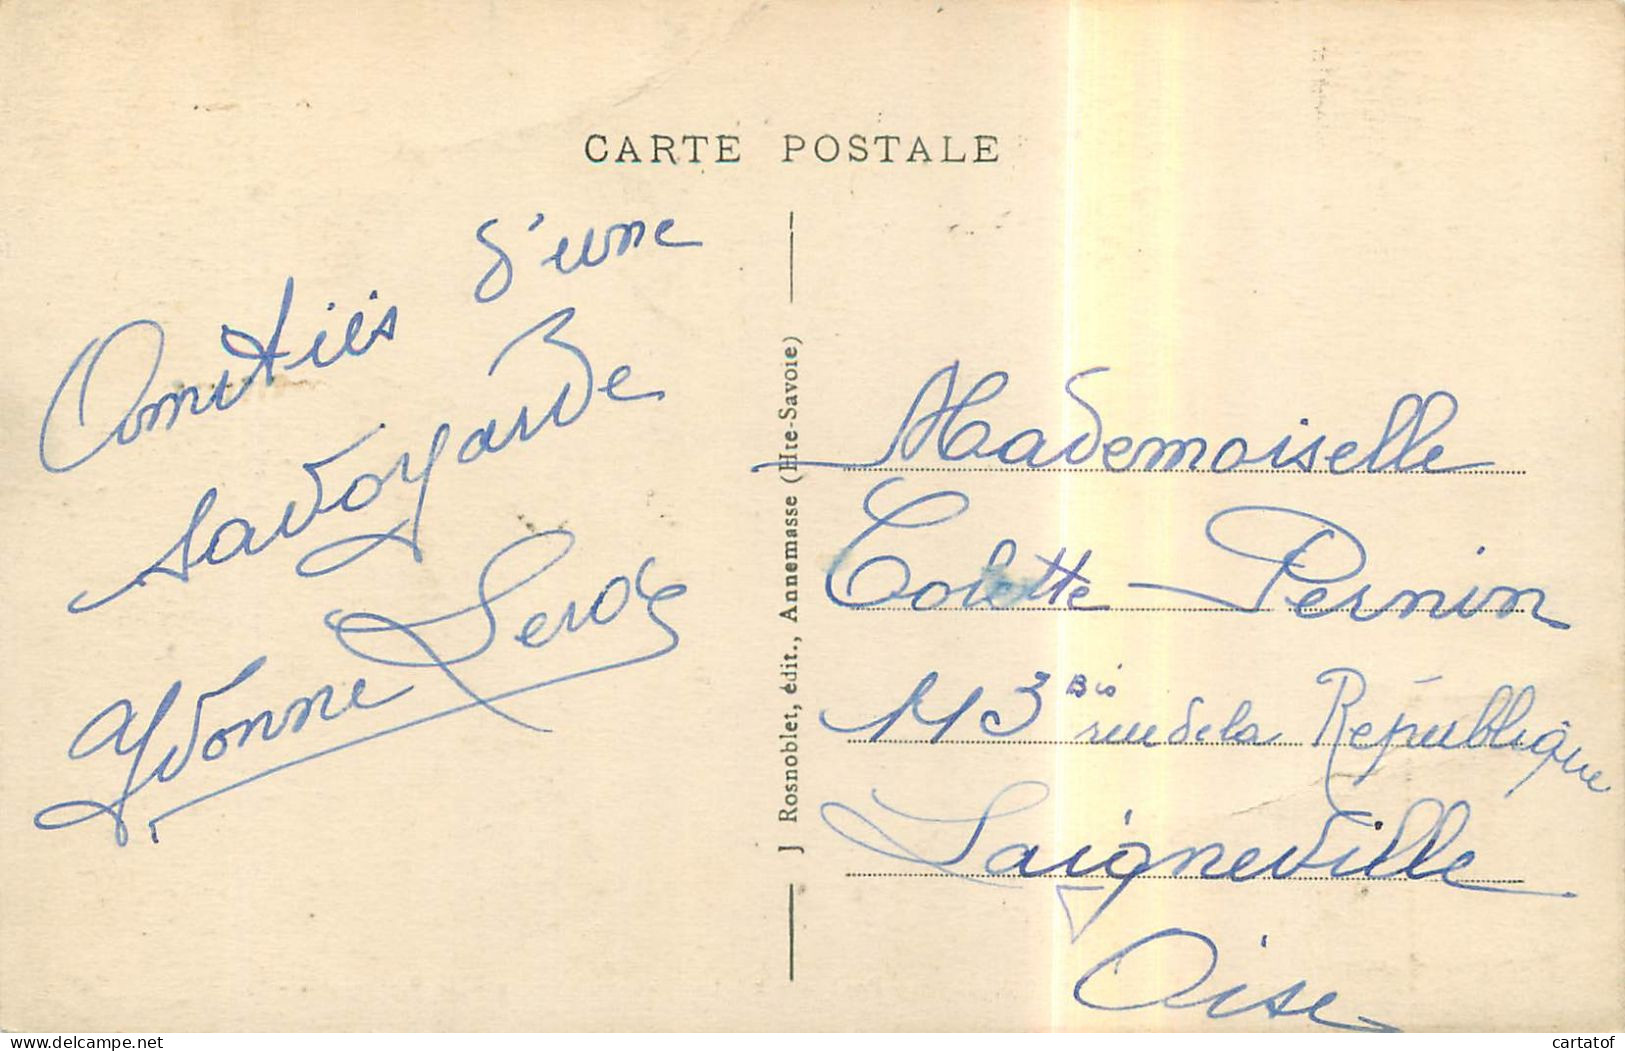 CARTE POSTALE
Amitiés d'une
savoyarde
Yvonne Leroy
J Rosnoblet, édit., Annemasse (Hte-Savoie)
Mademoiselle
Colette Pernin
113 Bis rue de la République
Laigneville
Oise
delcampe.net
cartatof